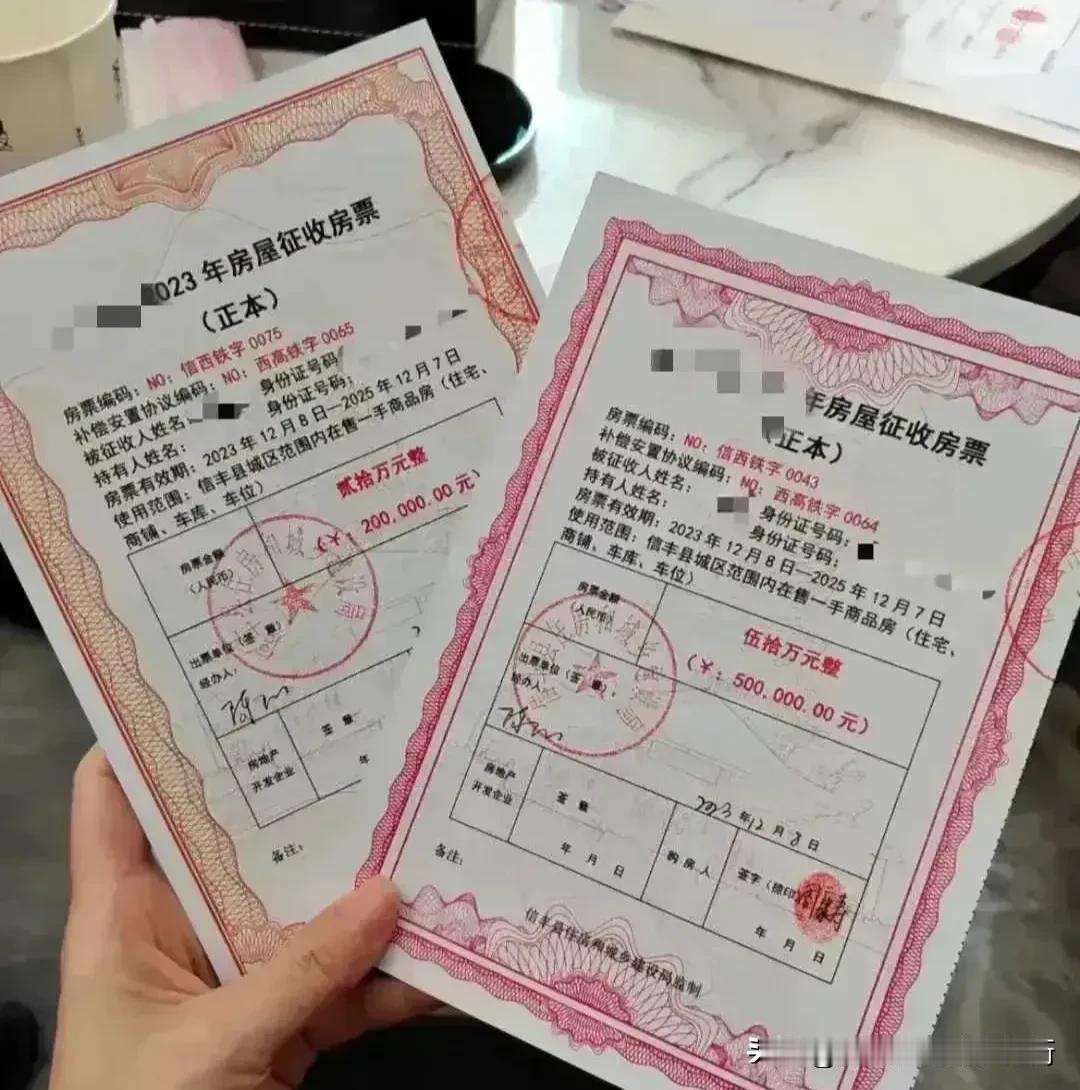 2023年房屋征收房票
（正本）
房票编码：NO：信西铁字0075
补偿安置协议编码：NO：西高铁字0065
被征收人姓名： 身份证号码
持有人姓名： 身份证号码：
房票有效期：2023年12月8日—2025年12月7日
使用范围：信丰县城区范围内在售一手商品房（住宅、
商铺、车库、车位）
房票金额
（人民币）
贰拾万元整
（￥：200,000.00元）
出票单位（签章）
经办人：
房地产
开发企业
签章
年
备注：
年房屋征收房票
（正本）
房票编码：NO：信西铁字0043
补偿安置协议编码：NO：西高铁字0064
被征收人姓名： 身份证号码：
持有人姓名： 身份证号码：
房票有效期：2023年12月8日—2025年12月7日
使用范围：信丰县城区范围内在售一手商品房（住宅、
商铺、车库、车位）
房票金额
（人民币）
伍拾万元整
（￥：500,000.00元）
出票单位（签章）：
经办人：
2023年12月8日
房地产
开发企业
签章
年 月 日
购房人
签字（捺印
年 月 日
备注：
信丰县住房和城乡建设局监制